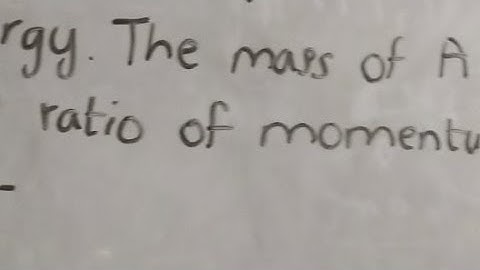 rgy. The mass of A
ratio of momentu
-